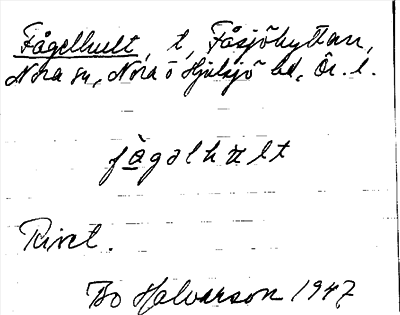 Fågelhult, t, Fåsjöhyttan,
Nora sn, Nora o Hjulsjö bd, Ör. l.
fàgəlhult
Rivet.
Bo Halvarson 1947